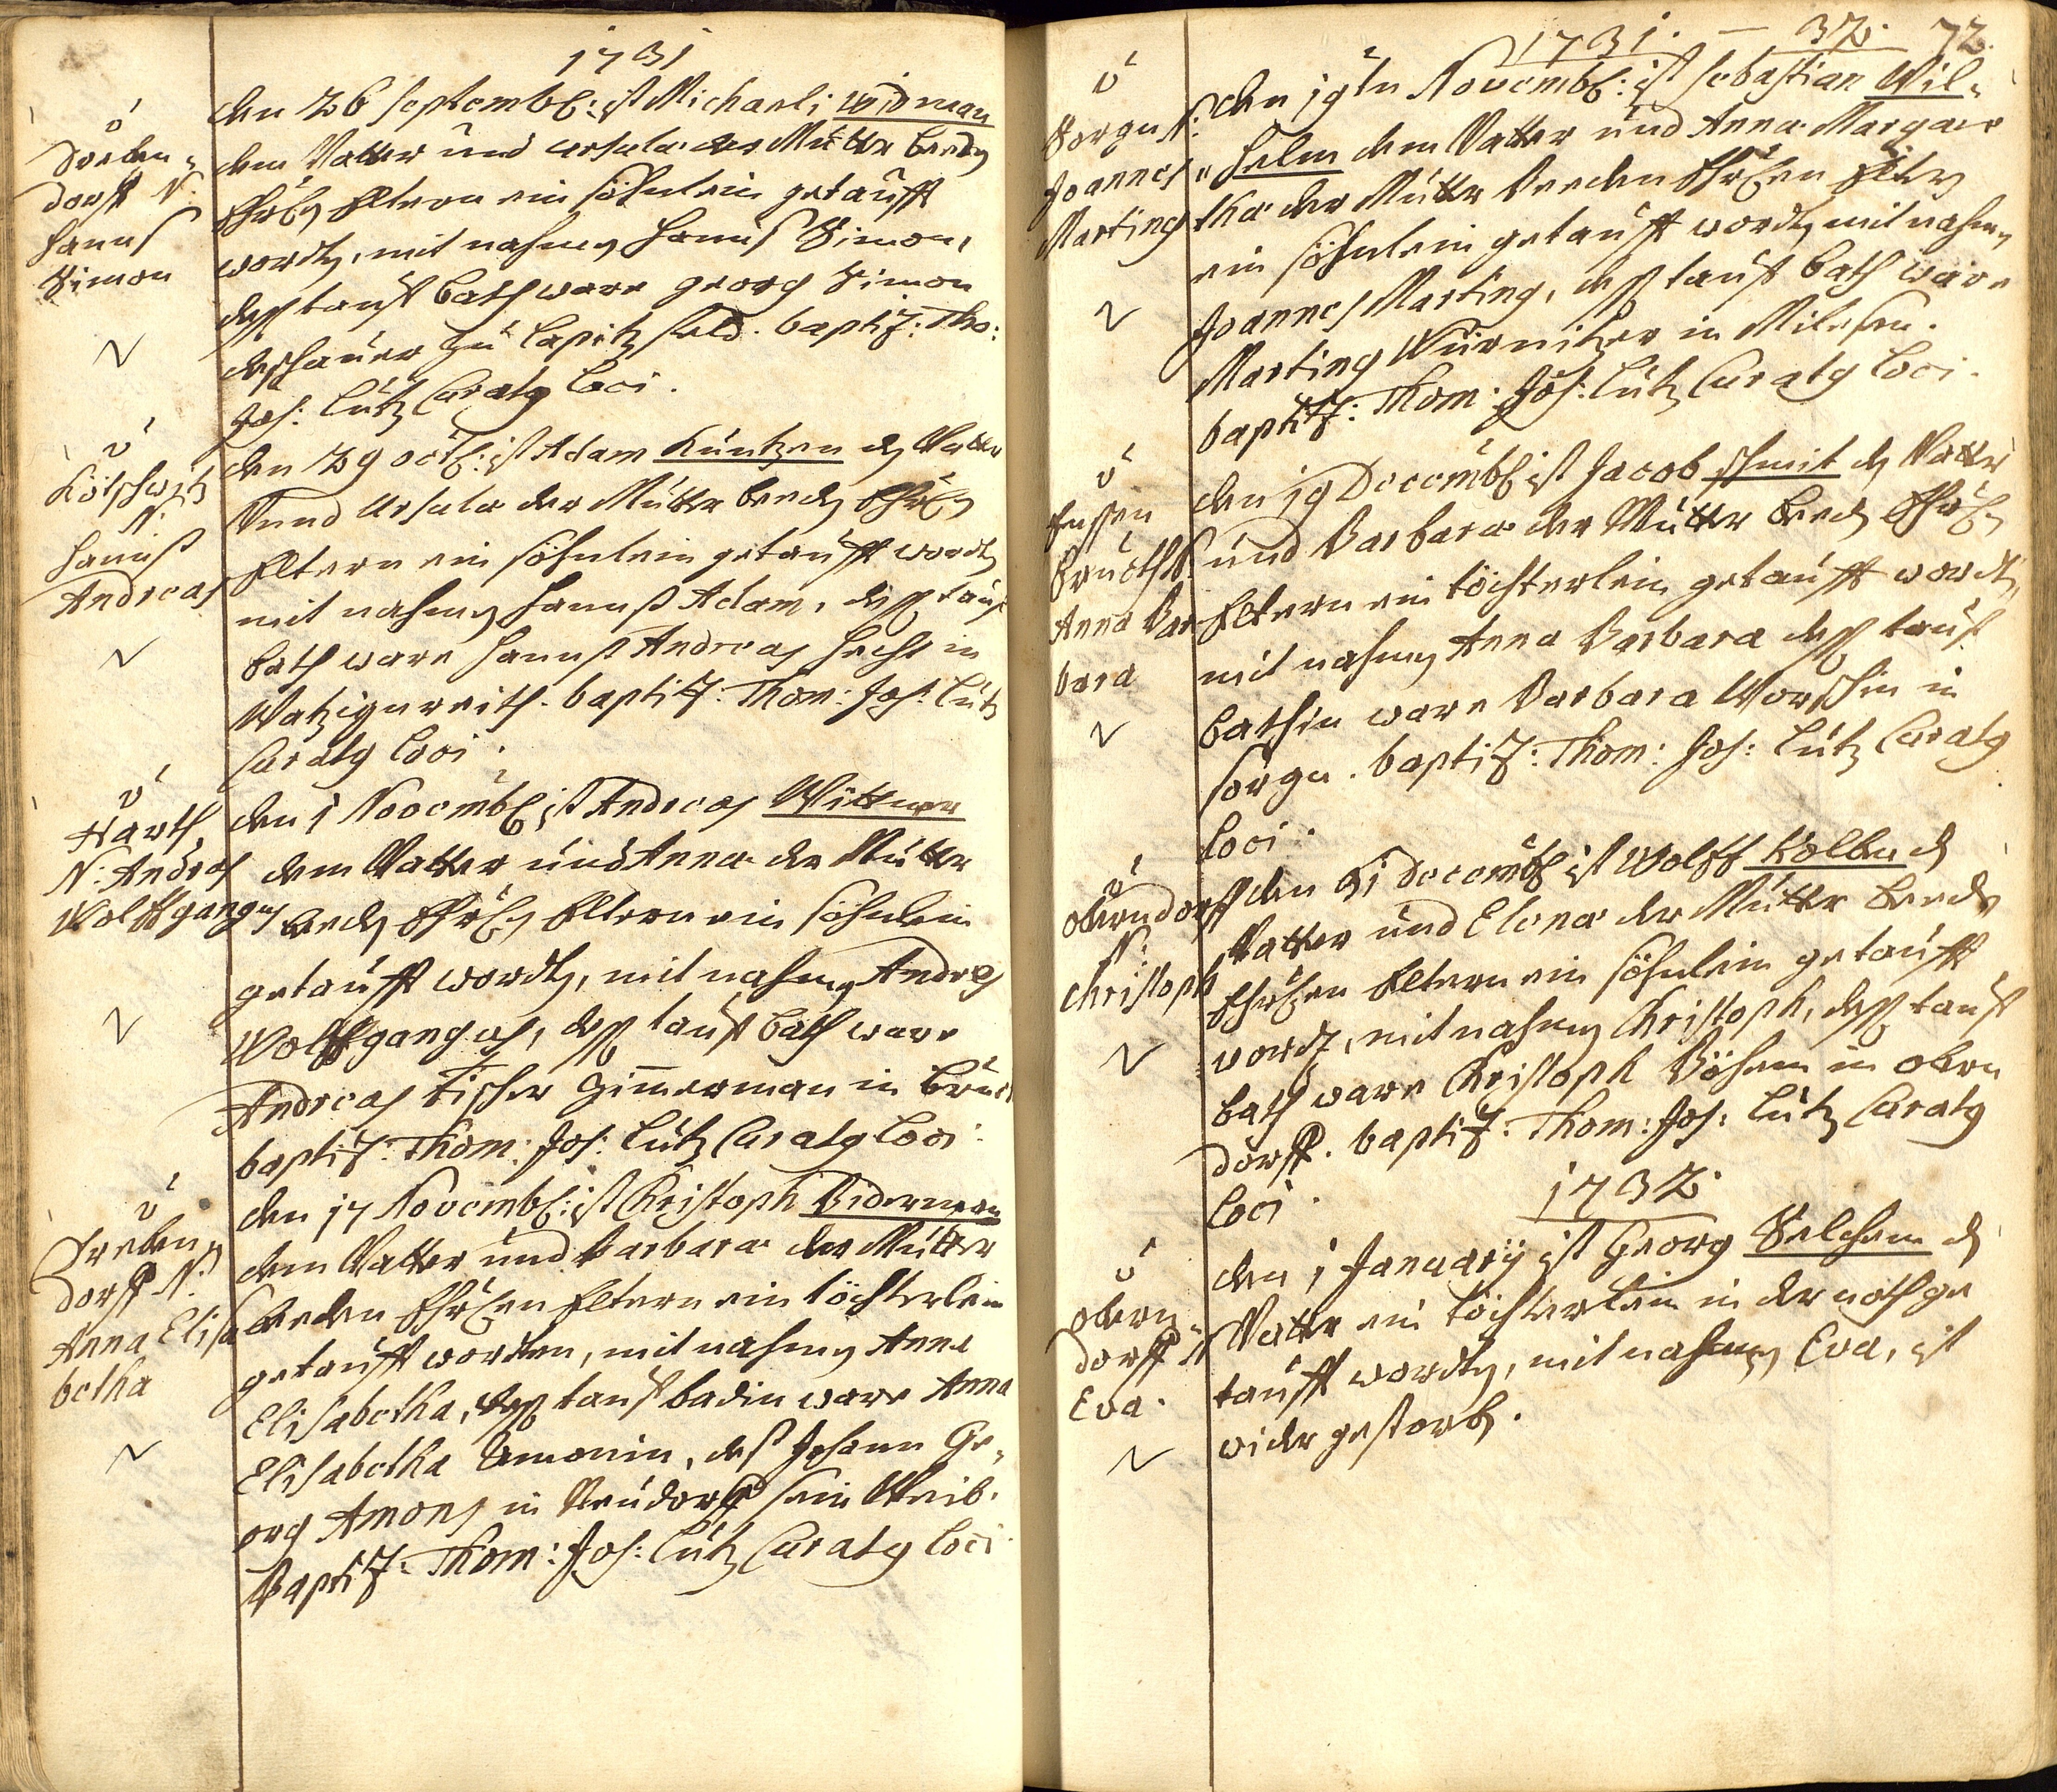 1731
Dreben-
dorff N:
Hannß
Simon
den 26 Septembr: ist Michaeli Widman
dem Vatter und Ursula der Mutter beeden
Ehrlen Eltern ein söhnlein getaufft
worden, mit nahmen Hannß Simon,
dess tauff bath ware Georg Simon
zu Lapitzfeld. baptiz: Tho:
Jos: Lutz Curaty Loci.
Kötschwitz
N:
Hannß
Andreas
den 29 octbr: ist Adam Küntzen dem Vatter
Unnd Ursula der Mutter beeden Ehrlen
Eltern ein söhnlein getaufft worden
mit nahmen Hannß Adam, dess tauff
bath ware Hannß Andreas Hecht in
Watzigenreith. baptiz: Thom: Jos: Lutz
Curaty Loci.
Harth,
N: Andreas
Wolffgangus
den 1 Novembr ist Andreas Wittmer
dem Vatter und Anna der Mutter
beeden Ehrlen Eltern ein söhnlein
getaufft worden, mit nahmen Andreas
Wolffgangus, dess tauff bath ware
Andreas Fischer Zimmerman in
baptiz: Thom: Jos: Lutz Curaty Loci.
Treben-
dorff N:
Anna Elisa
betha
den 17 Novembr: ist Christoph Biderman
dem Vatter und Barbara der Mutter
beeden Ehrlen Eltern ein töchterlein
getaufft worden, mit nahmen Anna
Elisabetha, dess tauff badin ware Anna
Elisabetha Amonin, deß Johann Ge-
org Amons in Neudorff sein Weib.
Baptiz: Thom: Jos: Lutz Curaty Loci
1731. — 32. 72.
Sorgen N:
Joannes
Marting
den 19ten Novembr: ist Sebastian Wil-
helm dem Vatter und Anna Margare
tha der Mutter beeden Ehrlen Eltern
ein söhnlein getaufft worden mit nahmen
Joannes Marting, dess tauff bath ware
Marting Würnitzer in Milesen.
baptiz: Thom: Jos: Lutz Curaty Loci.
Anna Bar
bara
den 19 Decembr ist Jacob Schmit dem Vatter
und Barbara der Mutter beeden Ehrlen
Eltern ein töchterlein getaufft worden,
mit nahmen Anna Barbara dess tauff
bathin ware Barbara Worschin in
Sorgen. baptiz: Thom: Jos: Lutz Curaty
Loci.
Oberndorff
N:
Christoph
den 21 Decembr ist Wolff Kolben dem
Vatter und Elena der Mutter beeden
Ehrlen Eltern ein söhnlein getaufft
worden, mit nahmen Christoph, dess tauff
bath ware Christoph Böhem in Obern
dorff. baptiz: Thom: Jos: Lutz Curaty
Loci.
1732.
Obern-
dorff N
Eva.
den 1 Januarij ist Georg Selchem dem
Vatter ein töchterlein in der noth ge
taufft worden, mit nahmen Eva, ist
wider gestorben.